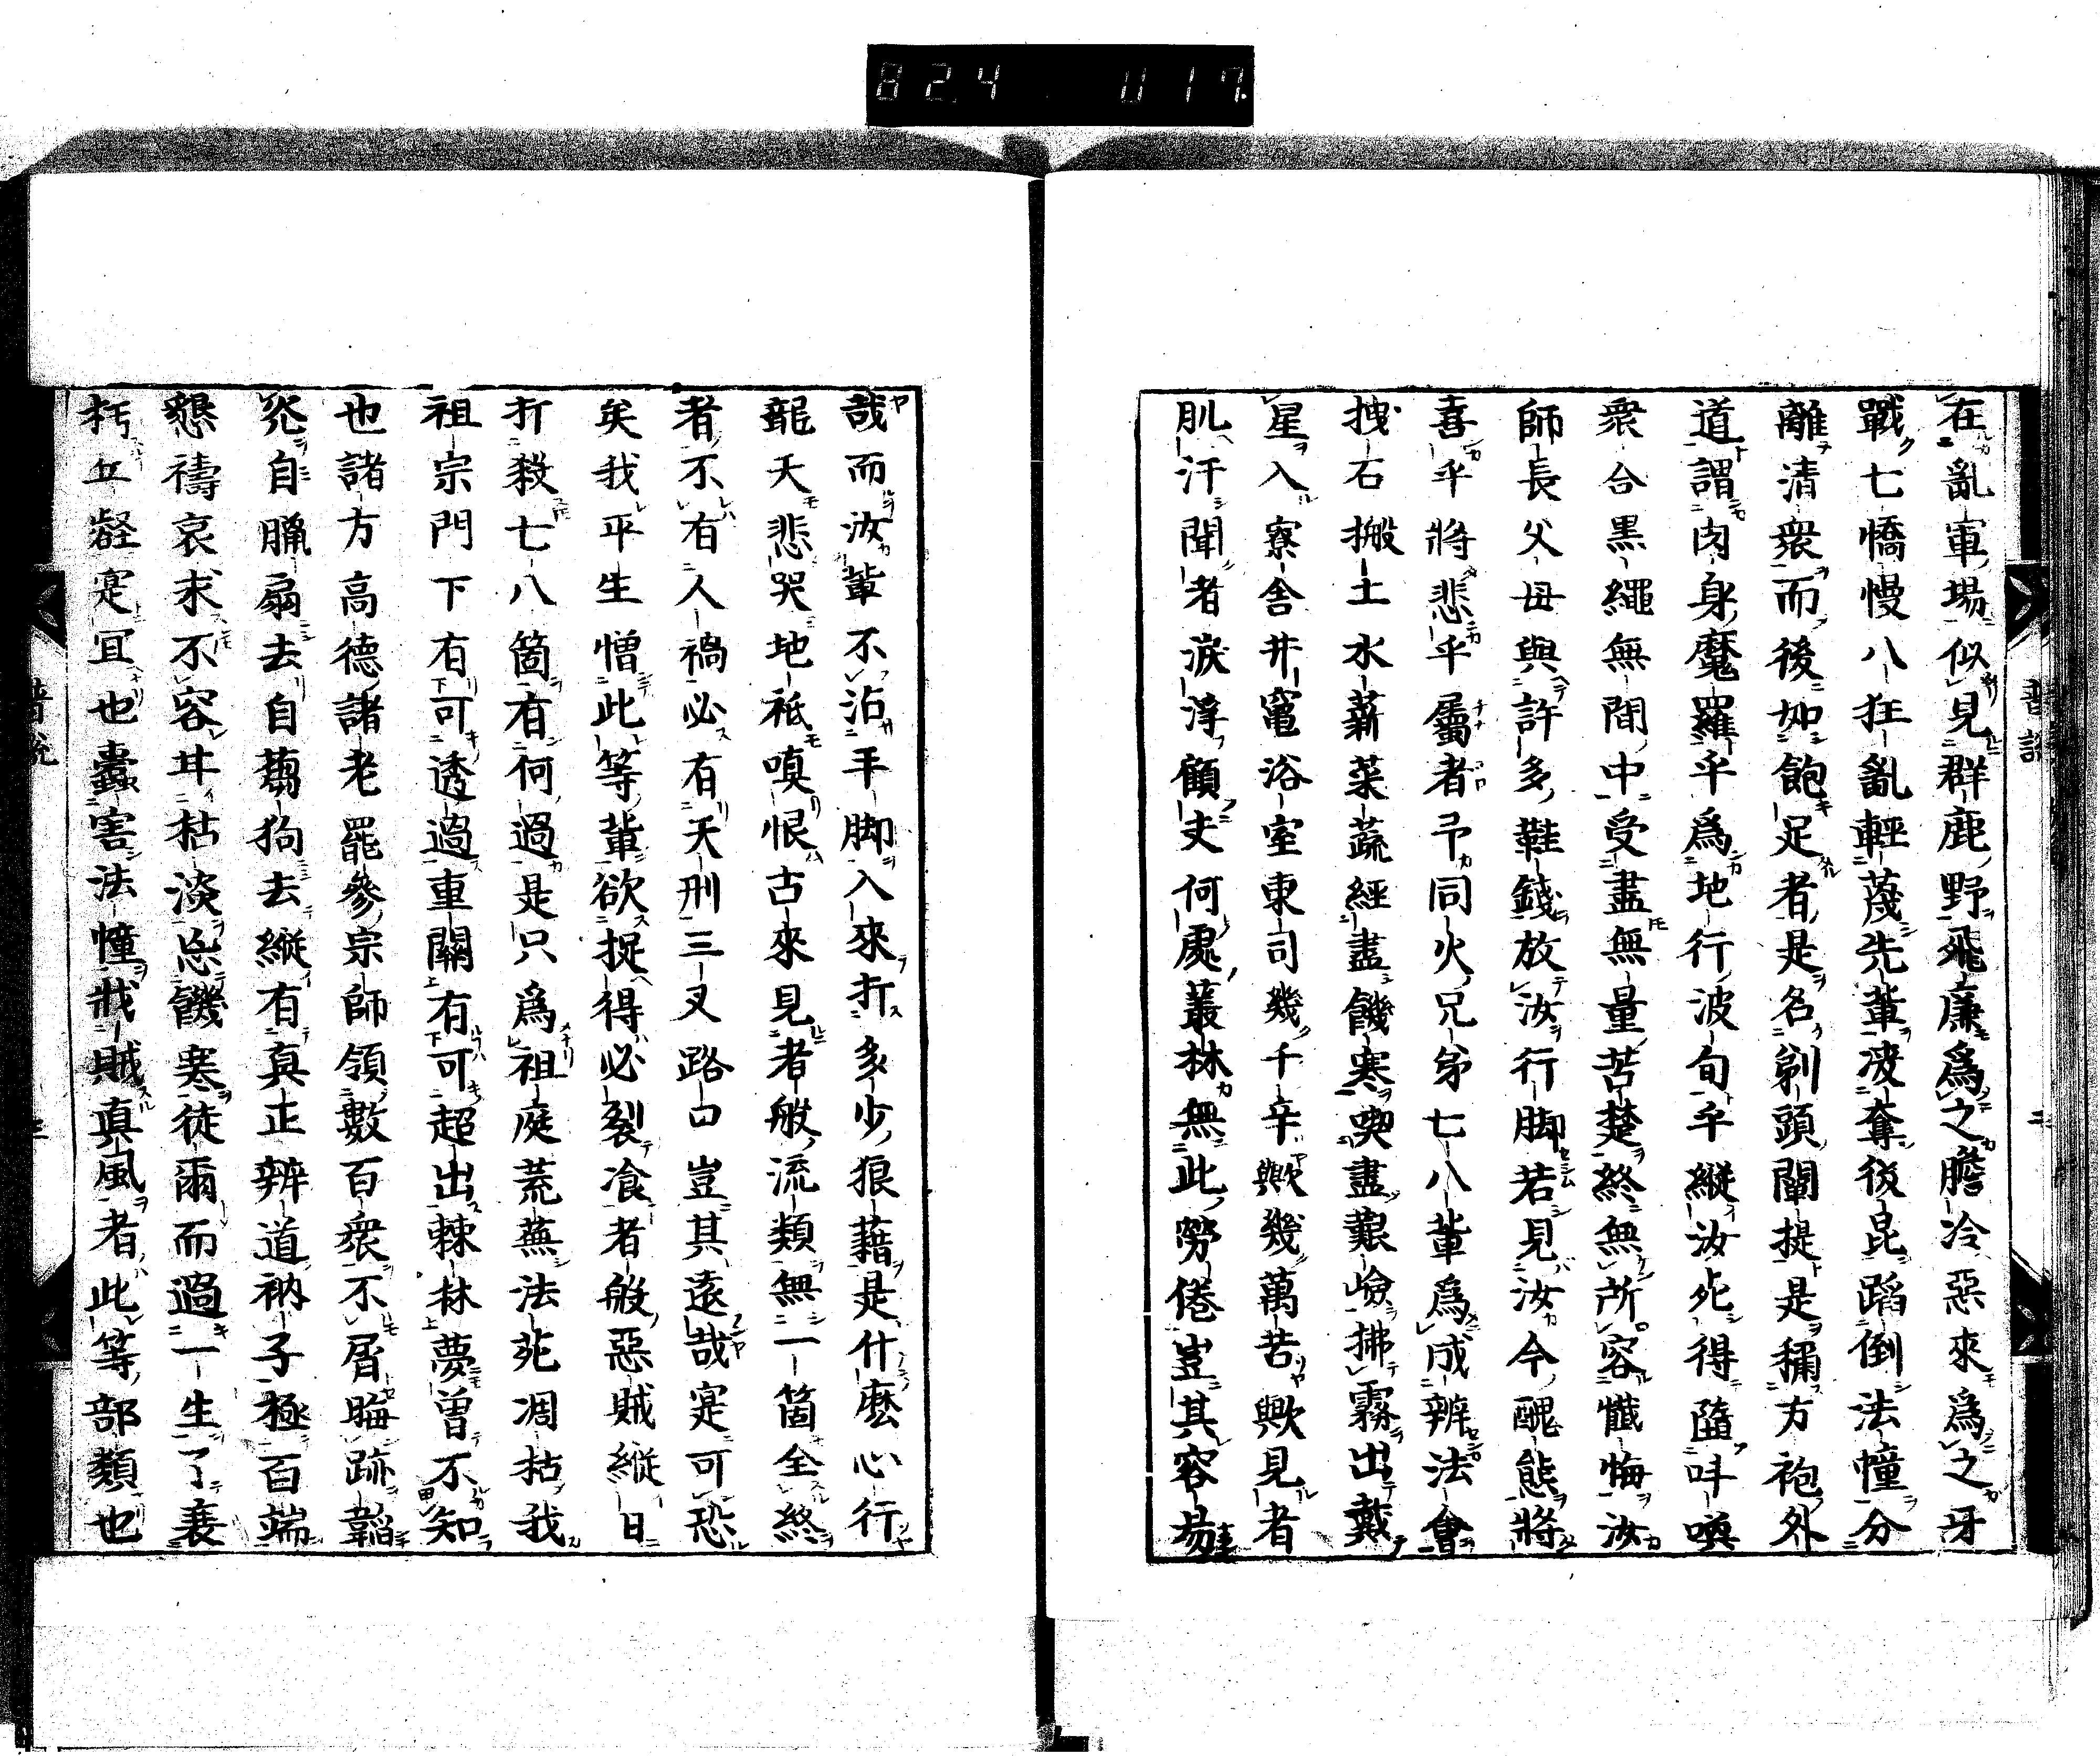 824 017
在亂軍場似見群鹿野飛廉爲之膽冷惡來爲之牙
戰七憍慢八狂亂輕蔑先輩凌奪後昆蹈倒法幢分
離清衆而後如飽足者是名剃頭闡提是稱方袍外
道謂肉身魔羅乎爲地行波旬乎縱汝死得隨叫喚
衆合黑繩無間中受盡無量苦楚終無所容懺悔汝
師長父母與許多鞋錢放汝行脚若見汝今醜態將
喜乎將悲乎屬者予同火兄弟七八輩爲成辨法會
拽石搬土水薪菜蔬經盡饑寒喫盡艱嶮拂霧出戴
星入寮舍井竈浴室東司幾千辛歟幾萬苦歟見者
肌汗聞者淚浮顧夫何處叢林無此勞倦豈其容易
哉而汝輩不沾手脚入來打多少狼藉是什麼心行
龍天悲哭地祇嗔恨古來見者般流類無一箇全終
者不有人禍必有天刑三叉路口豈其遠哉寔可恐
矣我平生憎此等輩欲捉得必裂飡者般惡賊縱日
打殺七八箇有何過是只爲祖庭荒蕪法苑凋枯我
祖宗門下有可透過重關有可超出棘林夢曾不知
也諸方高德諸老罷參宗師領數百衆不屑晦跡韜
光自臘扇去自芻狗去縱有真正辨道衲子極百端
懇禱哀求不容甘枯淡忍饑寒徒爾而過一生了衰
朽立凝寔冝也蠹害法幢戕賊真風者此等部類也
普說 二